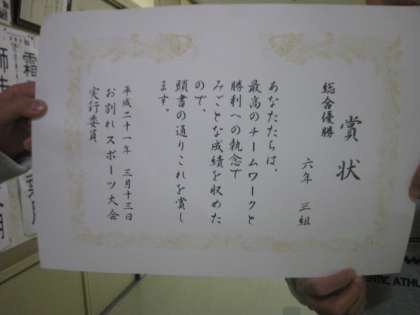 賞状
総合優勝
六年 三組
あなたたちは、
最高のチームワークと
勝利への執念で
みごとな成績を収めた
ので、
頭書の通りこれを賞し
ます。
平成二十一年 三月十三日
お別れスポーツ大会
実行委員